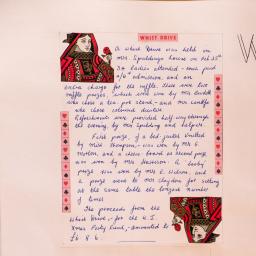 WHIST DRIVE
A Whist Drive was held in
Mrs Spauldings house on Feb 25th
34 ladies attended – each paid
admission, and an
extra charge for the raffle. There were two
raffle prizes, which were won by Mrs
who chose a tea pot stand – and Mrs
who chose coloured dusters
Refreshments were provided half way through
the evening, by Mrs Spalding and helpers.
First prize, of a bed-jacket knitted
by Miss Thompson, – was won by Mrs E.
Morton, and a cheese board as second prize
was won by Mrs Stevenson. A booby
prize was won by Mrs E. Wilson, and
a prize went to Mrs Claydon for sitting
at the same table the longest number
of times.
The proceeds from the
Whist Drive, – for the W.I.
Xmas Party Fund, – amounted to
£6. 8. 6.
W